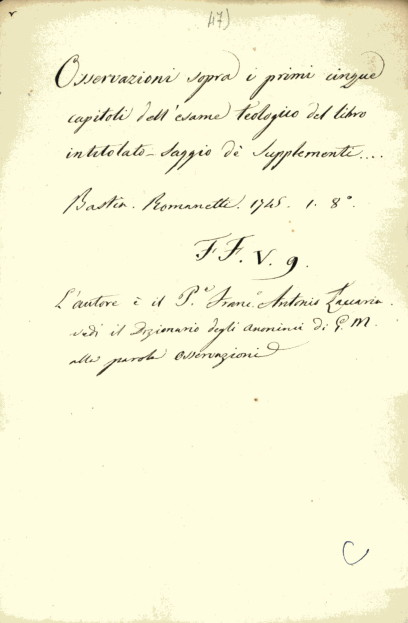 47)
Osservazioni sopra i primi cinque
capitoli dell'esame teologico del libro
intitolato - Saggio dè Supplementi....
Bastia. Romanetti. 1745. 1. 8°.
FF. V. 9.
L'autore è il P.e Franc.o Antonio Zaccaria.
vedi il Dizionario degli anonimi di G. M.
alla parola Osservazioni
C